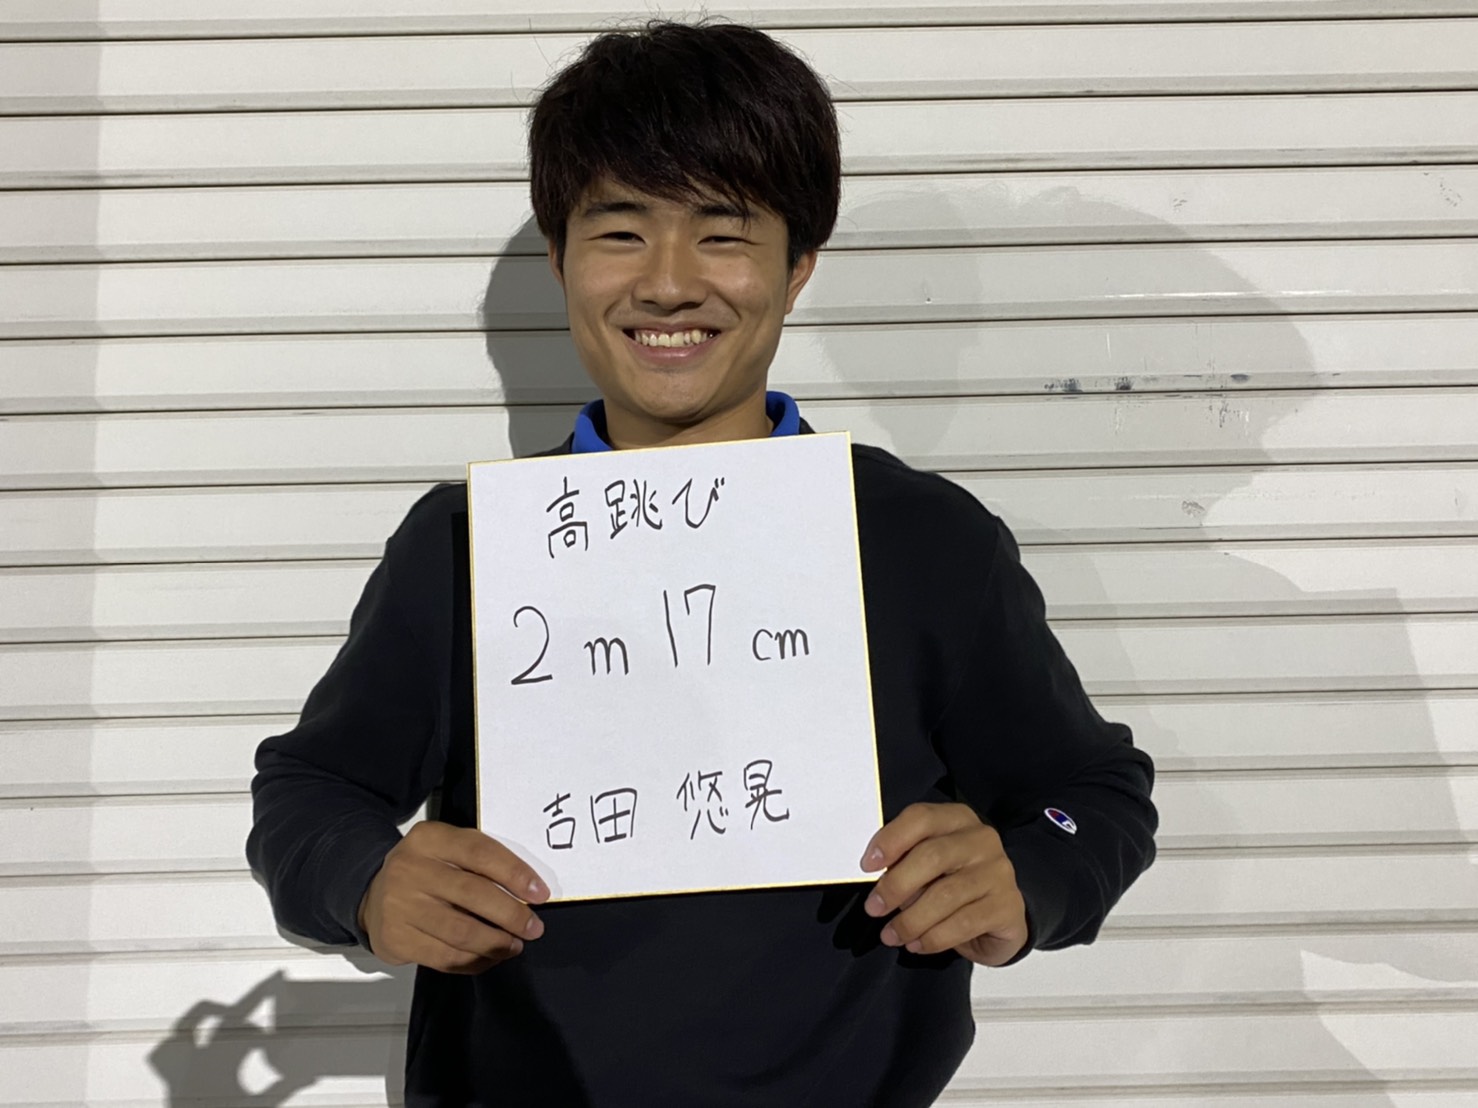 高跳び
2m 17cm
吉田 悠晃